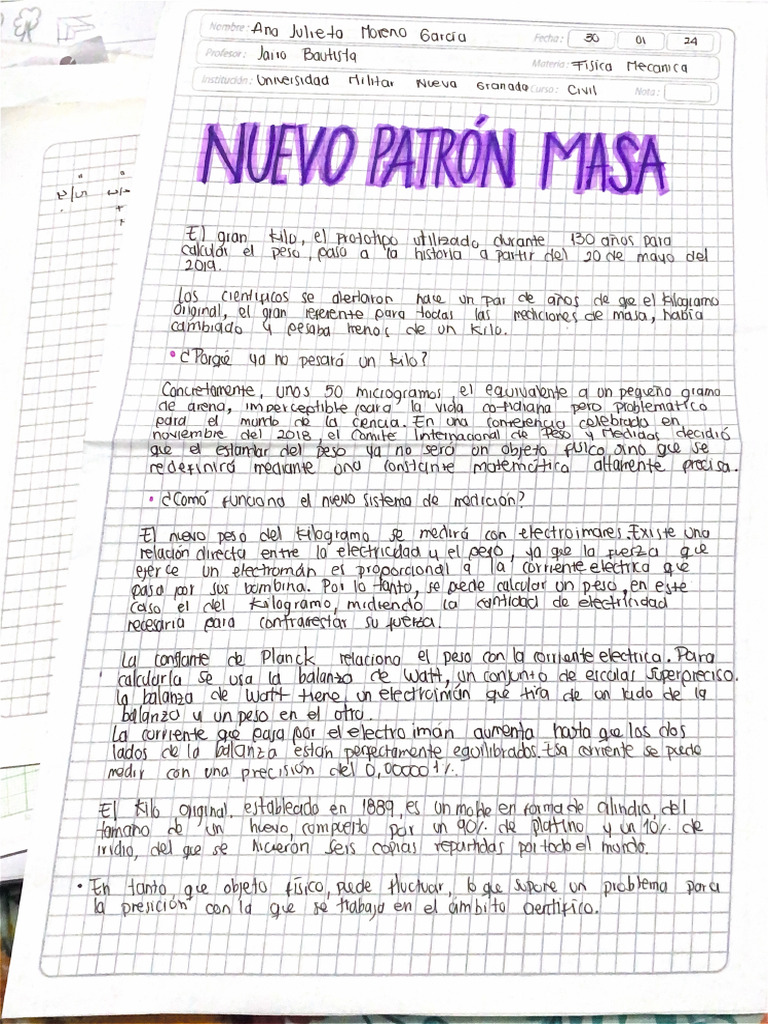 Nombre: Ana Julieta Moreno García Fecha: 30 01 24
Profesor: Jairo Bautista Materia: Fisica Mecanica
Institución: Universidad Militar Nueva Granada Curso: Civil Nota:
NUEVO PATRÓN MASA
El gran kilo, el prototipo utilizado durante 130 años para
calcular el peso, paso a la historia a partir del 20 de mayo del
2019.
Los cientificos se alertaron hace un par de años de que el kilogramo
original, el gran referente para todas las mediciones de masa, había
cambiado y pesaba menos de un kilo.
• ¿Porqué ya no pesará un kilo?
Concretamente, unos 50 microgramos, el equivalente a un pequeño gramo
de arena, imperceptible para la vida cotidiana pero problematico
para el mundo de la ciencia. En una conferencia celebrada en
noviembre del 2018, el Comite Internacional de Peso y Medidas decidió
que el estandar del peso ya no seró un objeto fisico sino que se
redefinirá mediante una constante matemática altamente precisa.
• ¿Comó funciona el nuevo sistema de medición?
El nuevo peso del kilogramo se medirá con electroimares. Existe una
relación directa entre la electricidad y el peso, ya que la fuerza que
ejerce un electromán es proporcional a la corriente electrica que
pasa por sus bombina. Por lo tanto, se puede calcular un peso, en este
caso el del kilogramo, midiendo la cantidad de electricidad
necesaria para contrarrestar su fuerza.
La constante de Planck relaciona el peso con la corriente electrica. Para
calcularla se usa la balanza de Watt, un conjunto de escalas superpreciso.
la balanza de Watt tiene un electroimán que tira de un lado de la
balanza y un peso en el otro.
La corriente que pasa por el electroimán aumenta hasta que los dos
lados de la balanza están perfectamente equilibrados. Esa corriente se puede
medir con una precisión del 0,000001%.
El kilo original, establecido en 1889, es un moble en forma de cilindio, del
tamaño de un huevo, compuerto por un 90% de platino y un 10% de
iridio, del que se hicieron seis copias repartidas por todo el mundo.
• En tanto, que objeto físico, puede fluctuar, lo que supone un problema para
la presición con la que se trabaja en el ámbito cientifico.